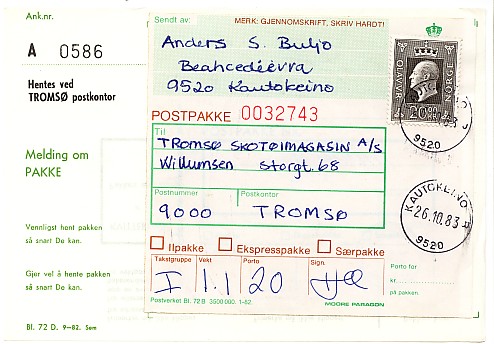 Ank.nr.
A 0586
Hentes ved
TROMSØ postkontor
Melding om
PAKKE
Vennligst hent pakken
så snart De kan.
Gjer vel å hente pakken
så snart De kan.
Bl. 72 D. 9-82. Sem
Sendt av:
MERK: GJENNOMSKRIFT, SKRIV HARDT!
Anders S. Buljo
Beahcedéevra
9520 Kautokeino
POSTPAKKE 0032743
Til
TROMSØ SKOTØIMAGASIN A/S
Willumsen Storgt. 68
Postnummer Postkontor
9000 TROMSØ
Ilpakke Ekspresspakke Særpakke
Takstgruppe Vekt Porto Sign.
I 1.1 20
Postverket Bl. 72 B 3500 000. 1-82.
MOORE PARAGON
OLAV V R NORGE
20.00
9520
KAUTOKEINO
-26.10.83
9520
Porto for
kr.
på pakken.